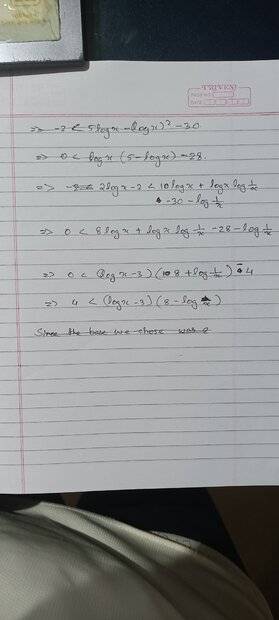 TRIVENI
PAGE NO.
DATE
=> -2 < 5logx - (logx)² - 30
=> 0 < logx (5 - logx) - 28.
=> 2logx - 2 < 10logx + logx log 1/x
- 30 - log 1/x
=> 0 < 8logx + logx log 1/x - 28 - log 1/x
=> 0 < (logx - 3)(8 + log 1/x) - 4
=> 4 < (logx - 3)(8 - log x)
Since the base we chose was e